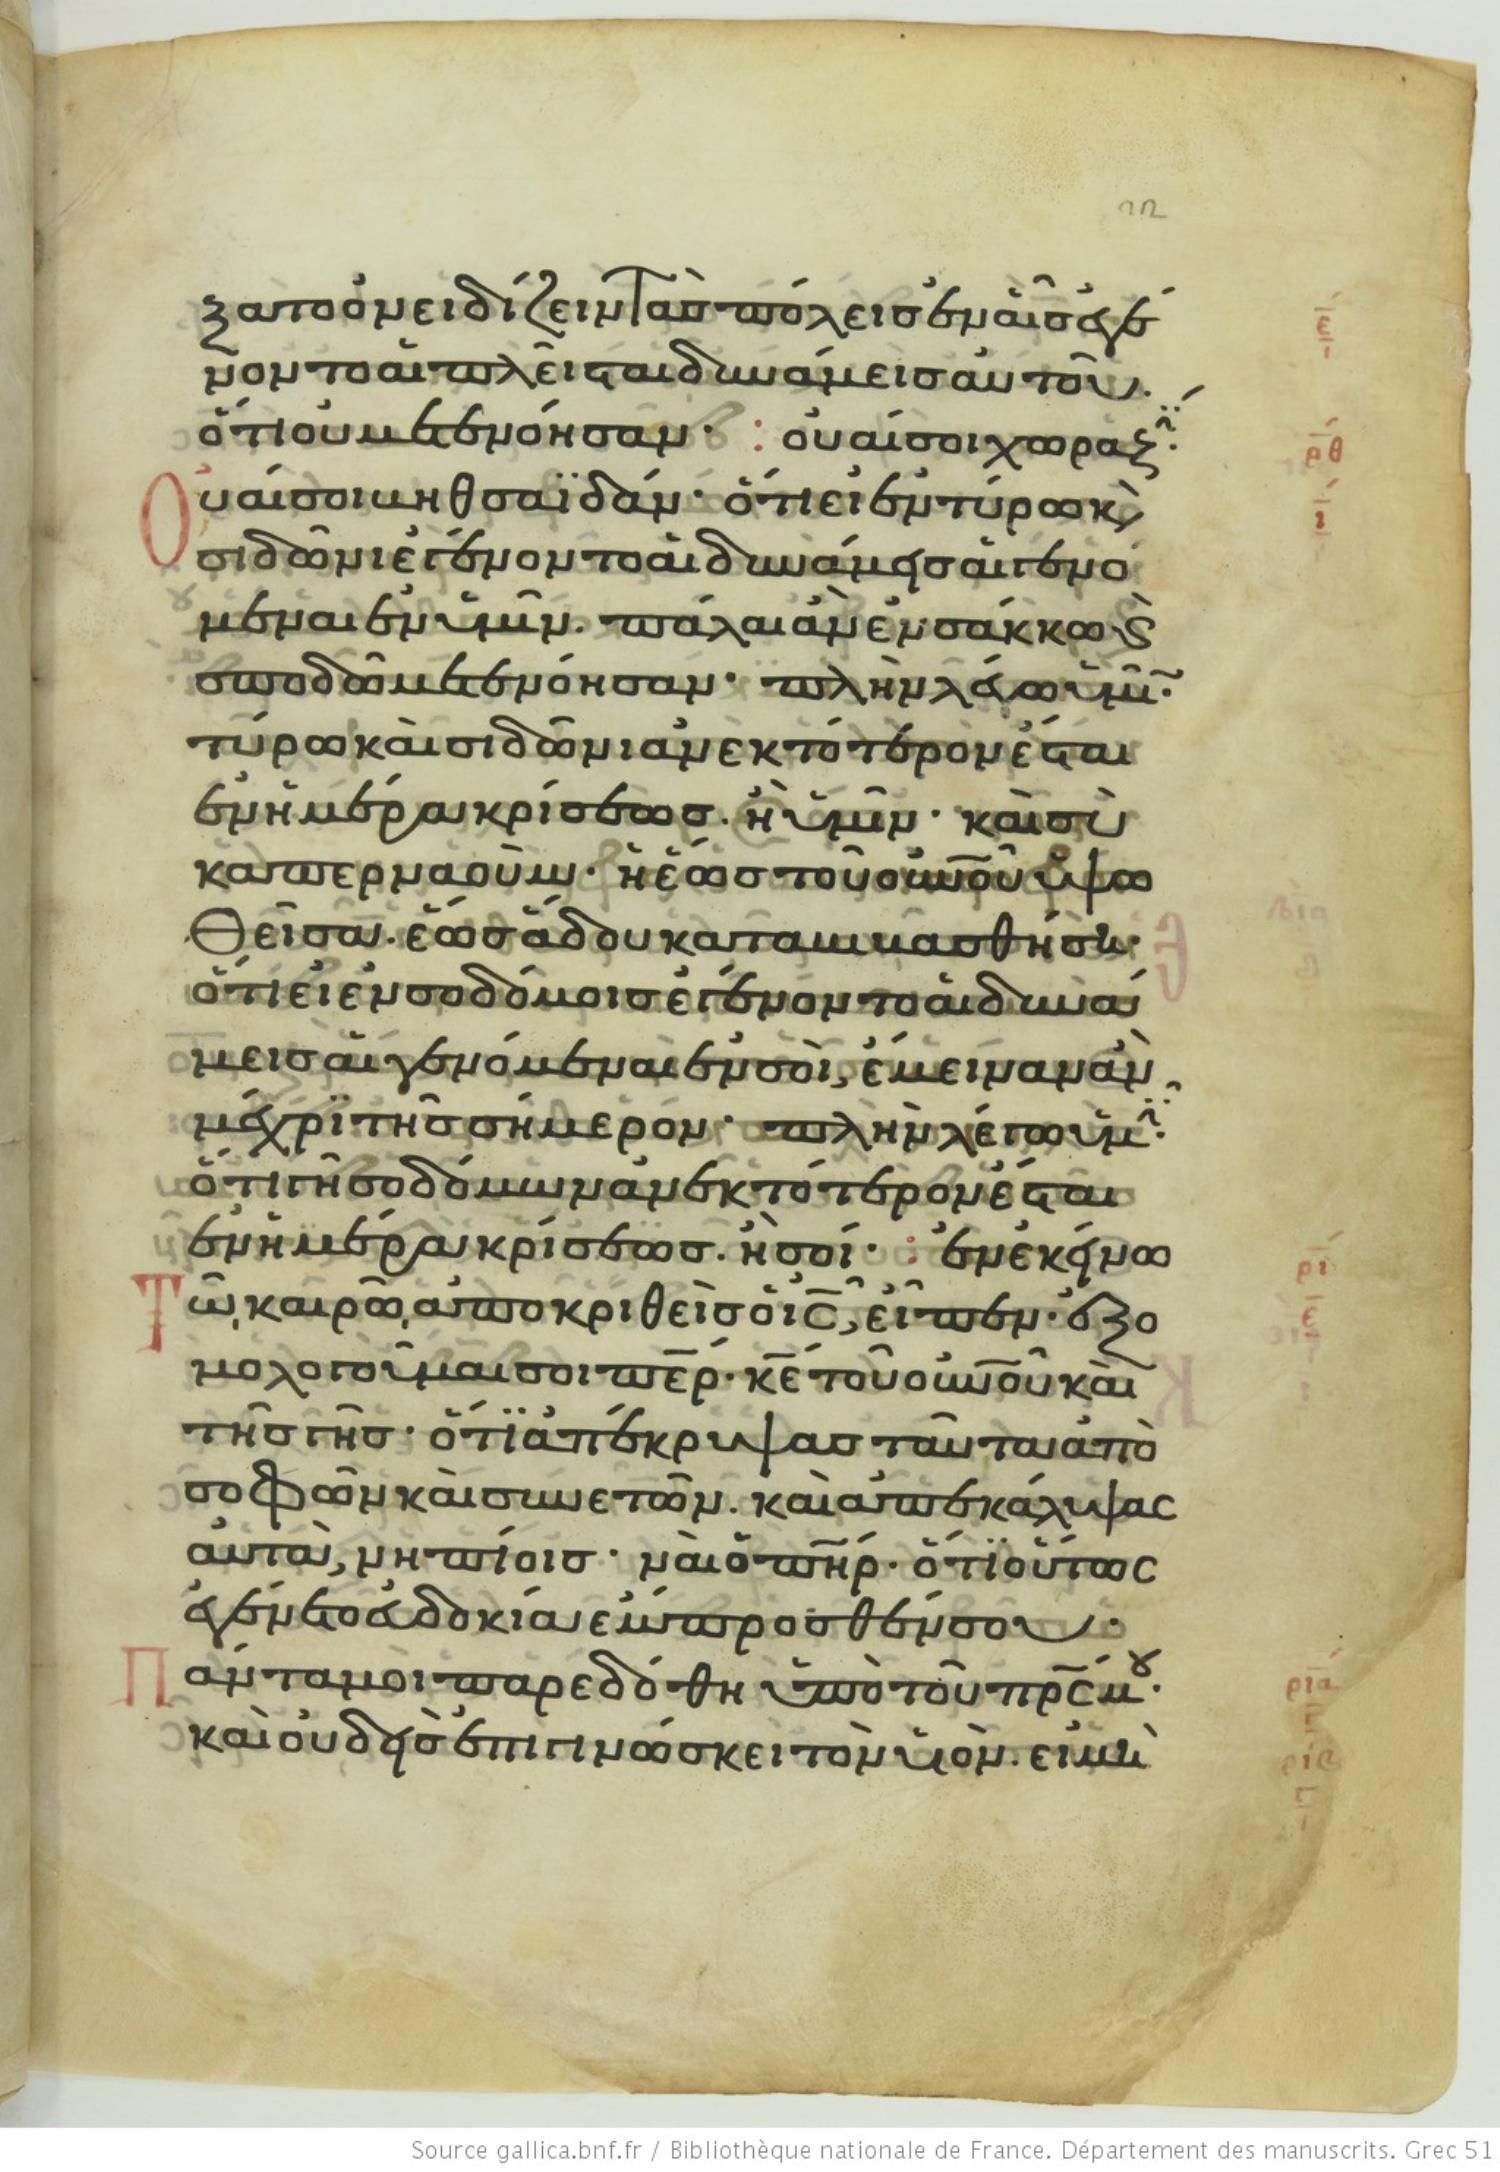 ξατο ὀνειδίζειν τὰς πόλεις ἐν αἷς ἐγέ
νοντο αἱ πλεῖσται δυνάμεις αὐτοῦ.
ὅτι οὐ μετενόησαν· : οὐαί σοι χωραζίν·
Οὐαί σοι βηθσαϊδάν· ὅτι εἰ ἐν τύρω κὶ
σιδῶνι ἐγένοντο αἱ δυνάμεις αἱ γενό
μεναι ἐν ὑμῖν. πάλαι ἂν ἐν σάκκω κὶ
σποδῶ μετενόησαν· πλὴν λέγω ὑμῖν·
τύρω καὶ σιδῶνι ἀνεκτότερον ἔσται
ἐν ἡμέρα κρίσεως. ἢ ὑμῖν· καὶ σὺ
καπερναούμ· ἡ ἕως τοῦ οὐνοῦ ὑψω
θεῖσα. ἕως ἅδου καταβιβασθήση·
ὅτι εἰ ἐν σοδόμοις ἐγένοντο αἱ δυνά
μεις αἱ γενόμεναι ἐν σοὶ, ἔμειναν ἂν
μέχρι τῆς σήμερον· πλὴν λέγω ὑμῖν·
ὅτι γῆ σοδόμων ἀνεκτότερον ἔσται
ἐν ἡμέρα κρίσεως. ἢ σοί· : ἐν ἐκείνω
Τῶ καιρῶ, ἀποκριθεὶς ὁ ις, εἶπεν· ἐξο
μολογοῦμαί σοι περ· κε τοῦ οὐνοῦ καὶ
τῆς γῆς· ὅτι ἀπέκρυψας ταῦτα ἀπὸ
σοφῶν καὶ συνετῶν. καὶ ἀπεκάλυψας
αὐτὰ, νηπίοις· ναὶ ὁ πηρ· ὅτι οὕτως
ἐγένετο εὐδοκία ἔμπροσθέν σου·
Πάντα μοι παρεδόθη ὑπὸ τοῦ πρς μου·
καὶ οὐδεὶς ἐπιγινώσκει τὸν υἱὸν. εἰ μὴ
ε
ρθ
ι
ρι
ε
ρια
ριβ
Source gallica.bnf.fr / Bibliothèque nationale de France. Département des manuscrits. Grec 51